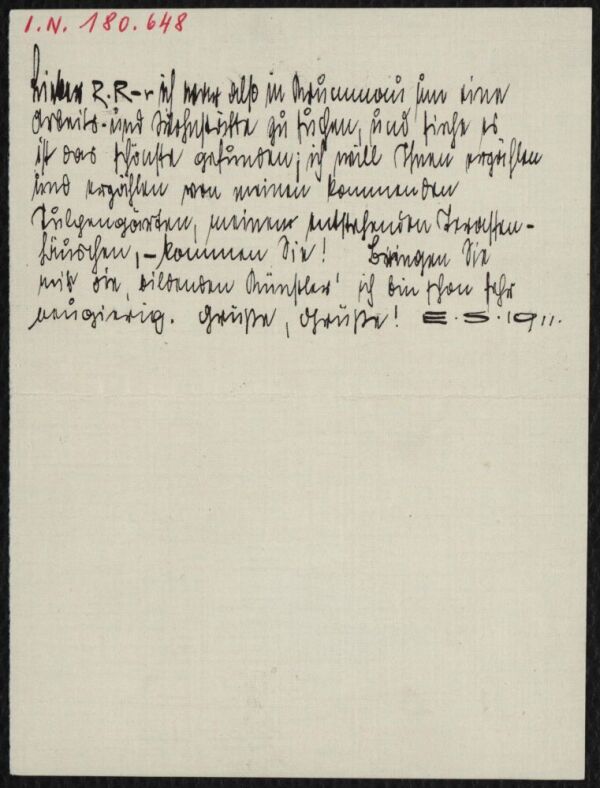 I.N. 180.648
Lieber R.R-r ich war also in Krummau um eine
Arbeits- und Wohnstätte zu suchen, und siehe es
ist das schönste gefunden; ich will Ihnen erzählen
und erzählen von meinen kommenden
Tulpengärten, meinem entstehenden Terassen-
häuschen, – kommen Sie! Bringen Sie
mir die ‚bildenden Künstler' ich bin schon sehr
neugierig. Grüße, Grüße! E.S. 1911.